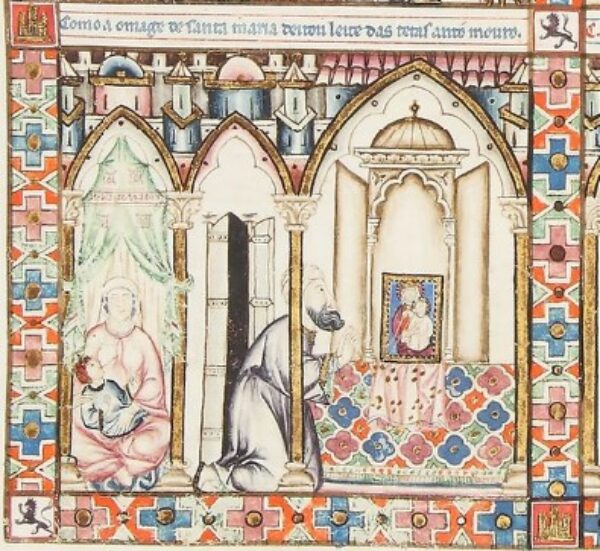 Como a omage de santa maria deitou leite das tetas ante mouro.
C